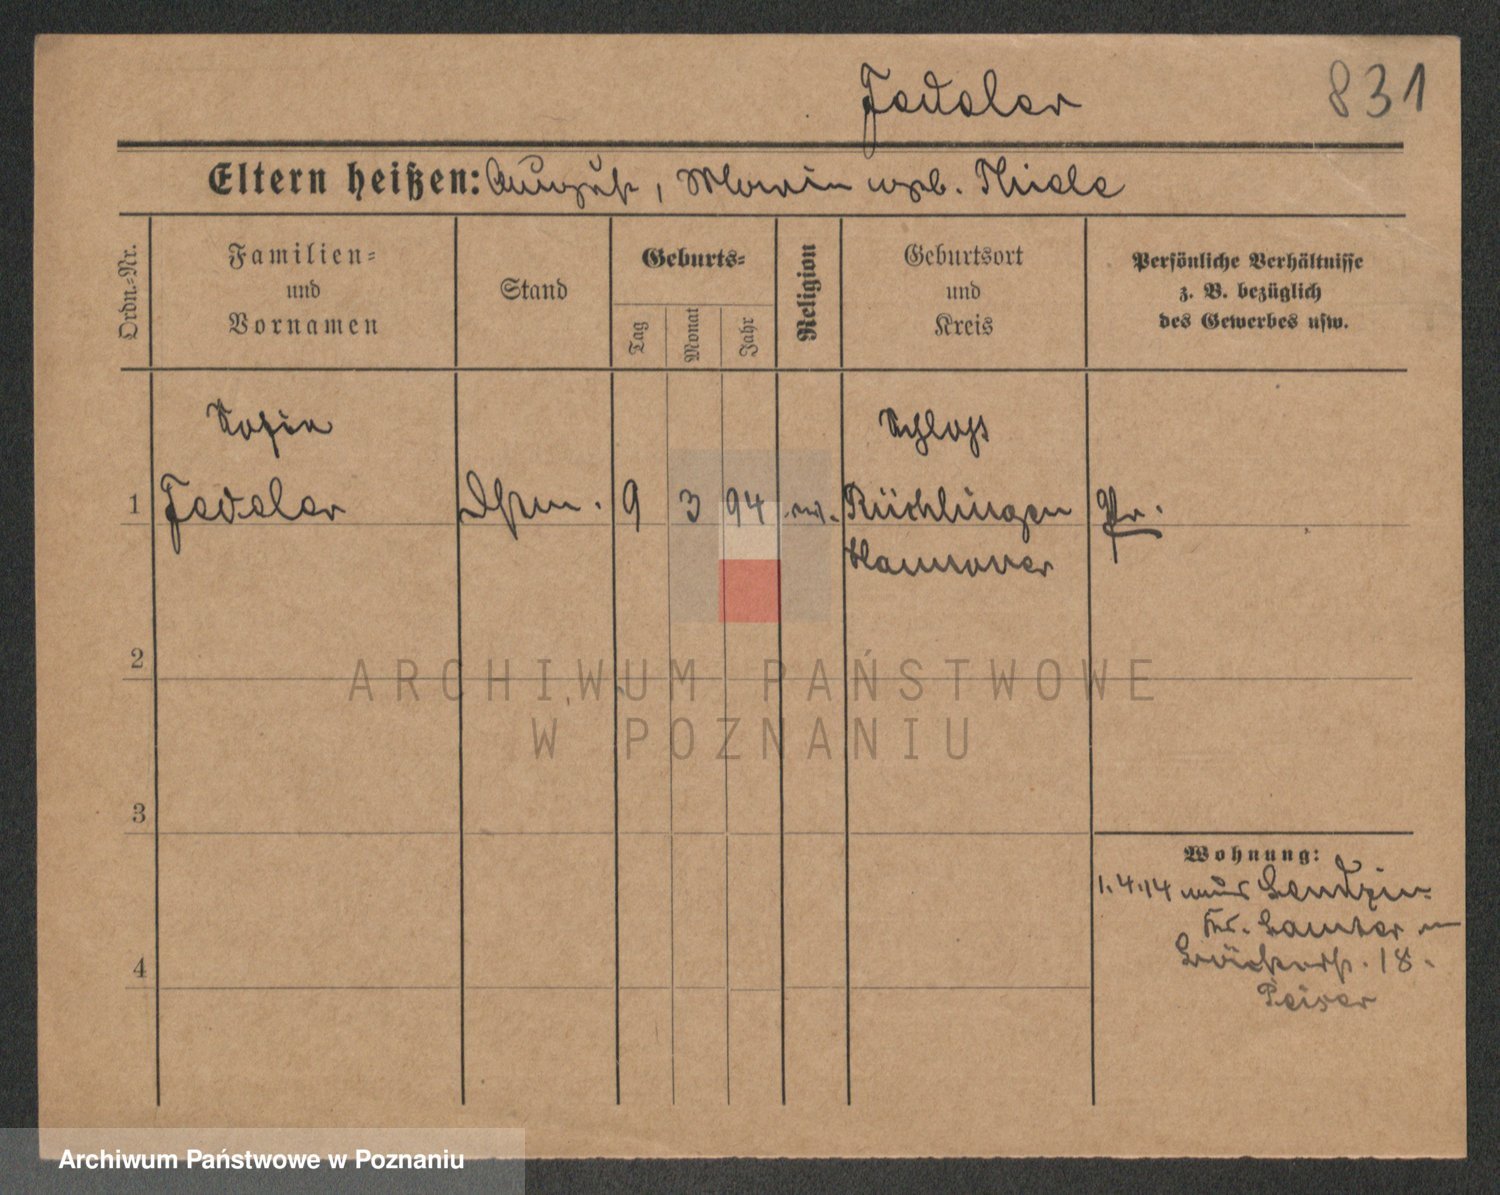 831
Eltern heißen: August, Marie geb. Thiele
Ordn.-Nr.
Familien-
und
Vornamen
Stand
Geburts-
Tag
Monat
Jahr
Religion
Geburtsort
und
Kreis
Persönliche Verhältnisse
z. B. bezüglich
des Gewerbes usw.
Sofie
Schloß
1
9
3
94
Pr.
Hannover
2
ARCHIWUM PAŃSTWOWE
W POZNANIU
3
Wohnung:
1.4.14
Kr. Samter
18.
4
Archiwum Państwowe w Poznaniu